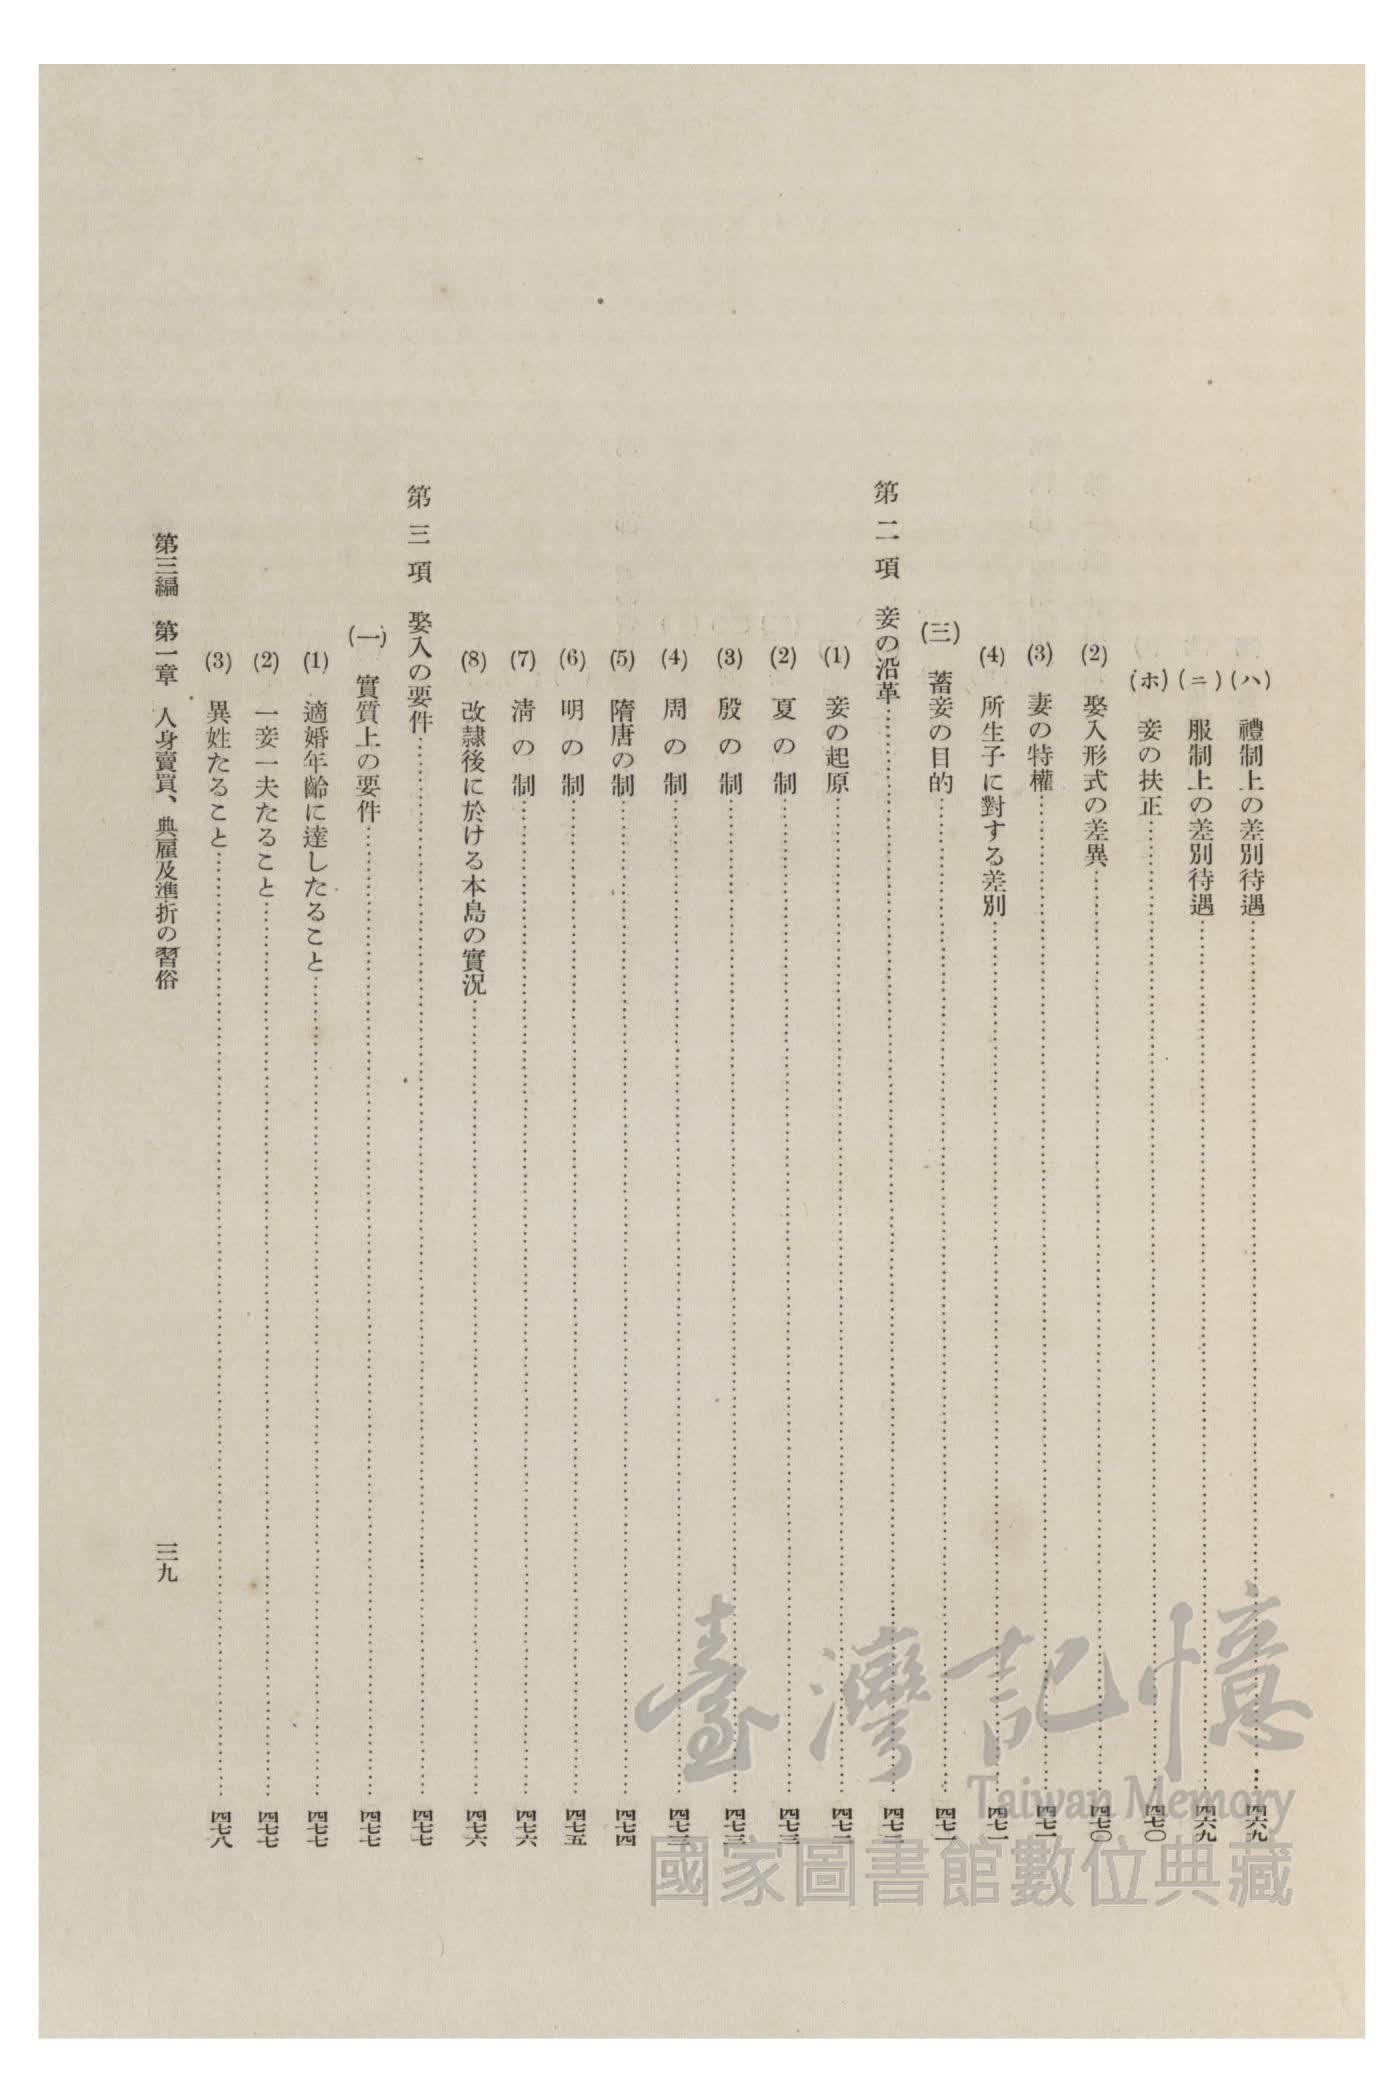 (ハ) 禮制上の差別待遇……四六九
(ニ) 服制上の差別待遇……四六九
(ホ) 妾の扶正……四七〇
(2) 娶入形式の差異……四七〇
(3) 妻の特權……四七一
(4) 所生子に對する差別……四七一
(三) 蓄妾の目的……四七一
第二項 妾の沿革……四七二
(1) 妾の起原……四七二
(2) 夏の制……四七三
(3) 殷の制……四七三
(4) 周の制……四七三
(5) 隋唐の制……四七四
(6) 明の制……四七五
(7) 清の制……四七六
(8) 改隷後に於ける本島の實況……四七六
第三項 娶入の要件……四七七
(一) 實質上の要件……四七七
(1) 適婚年齡に達したること……四七七
(2) 一妾一夫たること……四七七
(3) 異姓たること……四七八
第三編 第一章 人身賣買、典雇及準折の習俗
三九
臺灣記憶
Taiwan Memory
國家圖書館數位典藏